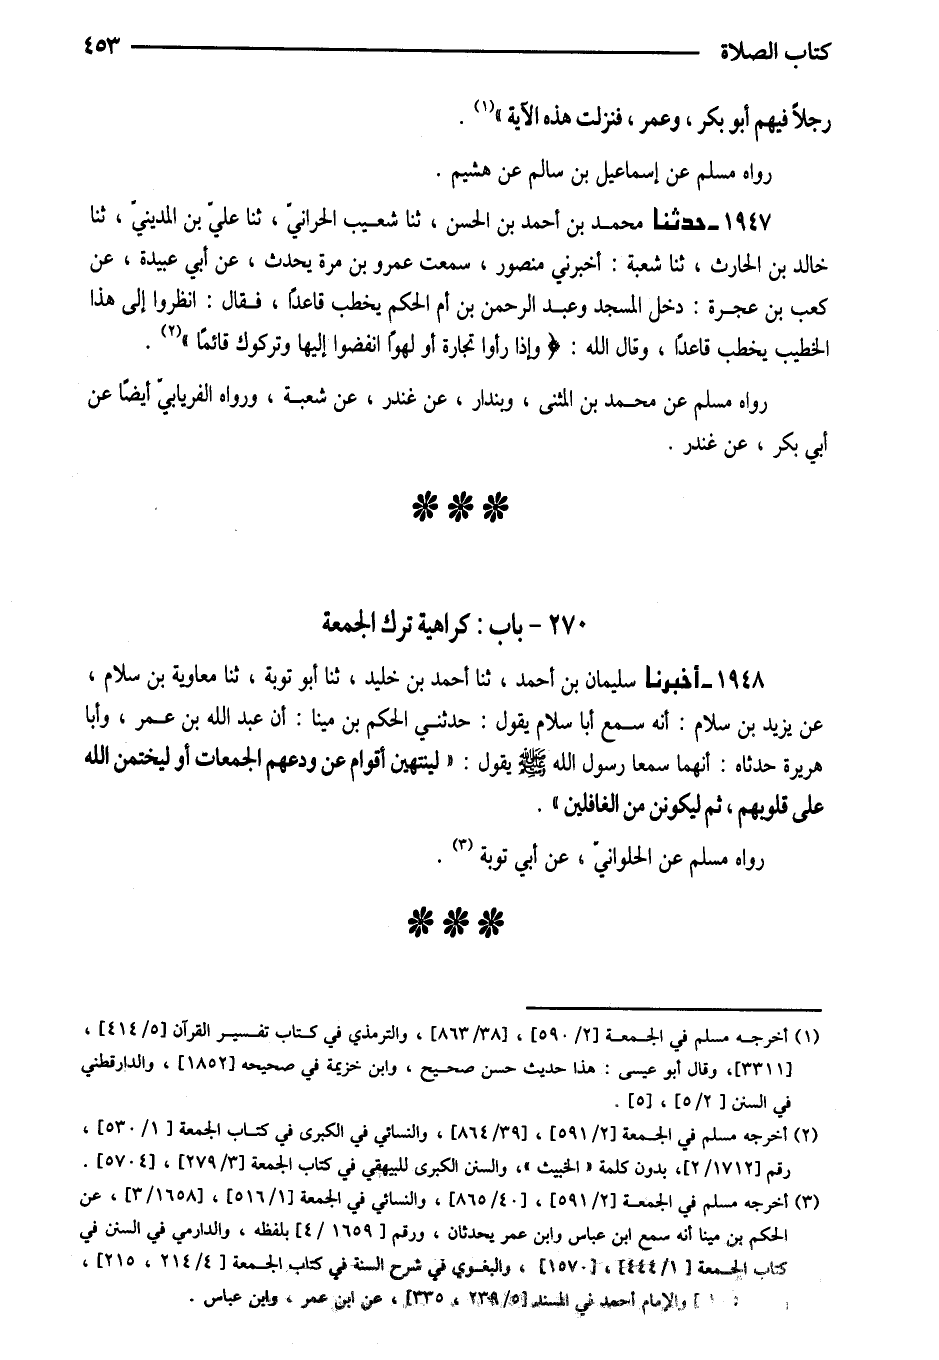 كتاب الصلاة ٤٥٣
رجلاً فيهم أبو بكر ، وعمر ، فنزلت هذه الآية »(١) .
رواه مسلم عن إسماعيل بن سالم عن هشيم .
١٩٤٧ـ حدثنا محمـد بن أحمد بن الحسن ، ثنا شعـيب الحرانيّ ، ثنا عليّ بن المدينيّ ، ثنا
خالد بن الحارث ، ثنا شعبة : أخبرني منصور ، سمعت عمرو بن مرة يحدث ، عن أبي عبيدة ، عن
كعب بن عجـرة : دخل المسجد وعبـد الرحمن بن أم الحكم يخطب قاعدًا ، فـقال : انظروا إلى هذا
الخطيب يخطب قاعدًا ، وقال الله : ﴿ وإذا رأوا تجارة أو لهوًا انفضوا إليها وتركوك قائمًا »(٢) .
رواه مسلم عن محـمد بن المثنى ، وبندار ، عن غندر ، عن شعبـة ، ورواه الفريابيّ أيضًا عن
أبي بكر ، عن غندر .
٢٧٠ - باب : كراهية ترك الجمعة
١٩٤٨ـ أخبرنا سليمان بن أحمد ، ثنا أحمد بن خليد ، ثنا أبو توبة ، ثنا معاوية بن سلام ،
عن يزيد بن سلام : أنه سـمع أبا سلام يقول : حدثنـي الحكم بن مينا : أن عبد الله بن عـمر ، وأبا
هريرة حدثاه : أنهما سمعا رسول الله ﷺ يقول : « لينتهين أقوام عن ودعهم الجمعات أو ليختمن الله
على قلوبهم ، ثم ليكونن من الغافلين » .
رواه مسلم عن الحلوانيّ ، عن أبي توبة (٣) .
(١) أخرجـه مسلم في الجـمعـة [٢/ ٥٩٠] ، [٨٦٣/٣٨] ، والترمذي في كـتاب تفسـير القرآن [٤١٤/٥] ،
[٣٣١١]، وقال أبو عيسى : هذا حديث حسن صحيح ، وابن خزيمة في صحيحه [١٨٥٢] ، والدارقطني
في السنن [ ٥/٢] ، [٥] .
(٢) أخرجه مسلم في الجـمعة [٥٩١/٢] ، [٨٦٤/٣٩] ، والنسائي في الكبرى في كتـاب الجمعة [ ١/ ٥٣٠] ،
رقم [٢/١٧١٢]، بدون كلمة « الخبيث »، والسنن الكبرى للبيهقي في كتاب الجمعة [٢٧٩/٣] ، [٥٧٠٤] .
(٣) أخرجه مسلم في الجمعـة [٥٩١/٢] ، [٨٦٥/٤٠] ، والنسائي في الجمعة [٥١٦/١] ، [٣/١٦٥٨] ، عن
الحكم بن مينا أنه سمع ابن عباس وابن عمر يحدثان ، ورقم [ ١٦٥٩ /٤] بلفظه ، والدارمي في السنن في
كتاب الجـمعة [ ٤٤٤/١] ، [١٥٧٠] ، والبغـوي في شرح السنة في كتاب الجمعة [ ٢١٤/٤ ، ٢١٥] ،
] والإمام أحمد في المسند [٢٣٩/٥ ، ٣٣٥] ، عن ابن عمر ، وابن عباس .